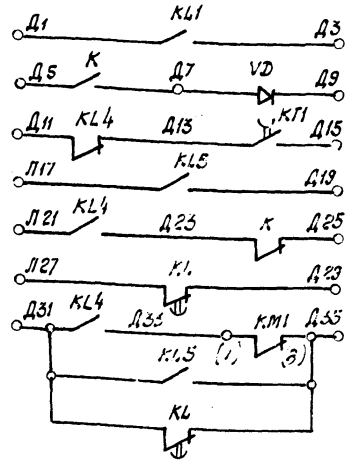 Д1 KL1 Д3
Д5 K Д7 VD Д9
Д11 KL4 Д13 КТ1 Д15
Л17 KL5 Д19
Л21 KL4 Д23 K Д25
Л27 KL Д29
Д31 KL4 Д33 (1) KM1 (3) Д35
KL5
KL